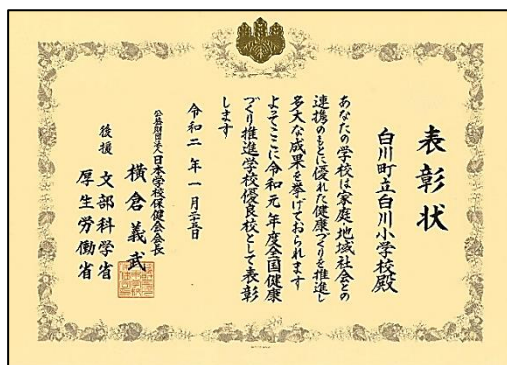 表彰状
白川町立白川小学校殿
あなたの学校は家庭地域社会との
連携のもとに優れた健康づくりを推進し
多大な成果を挙げておられます
よってここに令和元年度全国健康
づくり推進学校優良校として表彰
します
令和二年一月二十五日
公益財団法人日本学校保健会会長
横倉義武
後援 文部科学省
厚生労働省